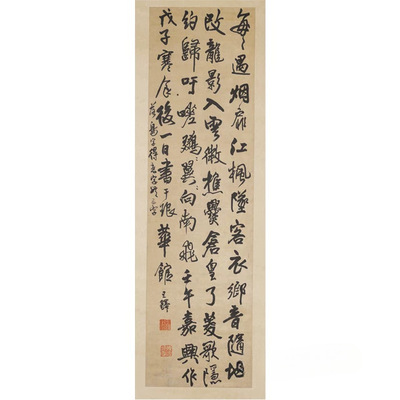 每遇烟扉江枫墜客衣鄉音隨地
改龍影入雲微樵爨倉皇了菱歌隱
約歸吁嗟鷄翼向南飛壬午嘉興作
戊子寒食後一日書于琅華館 王鐸